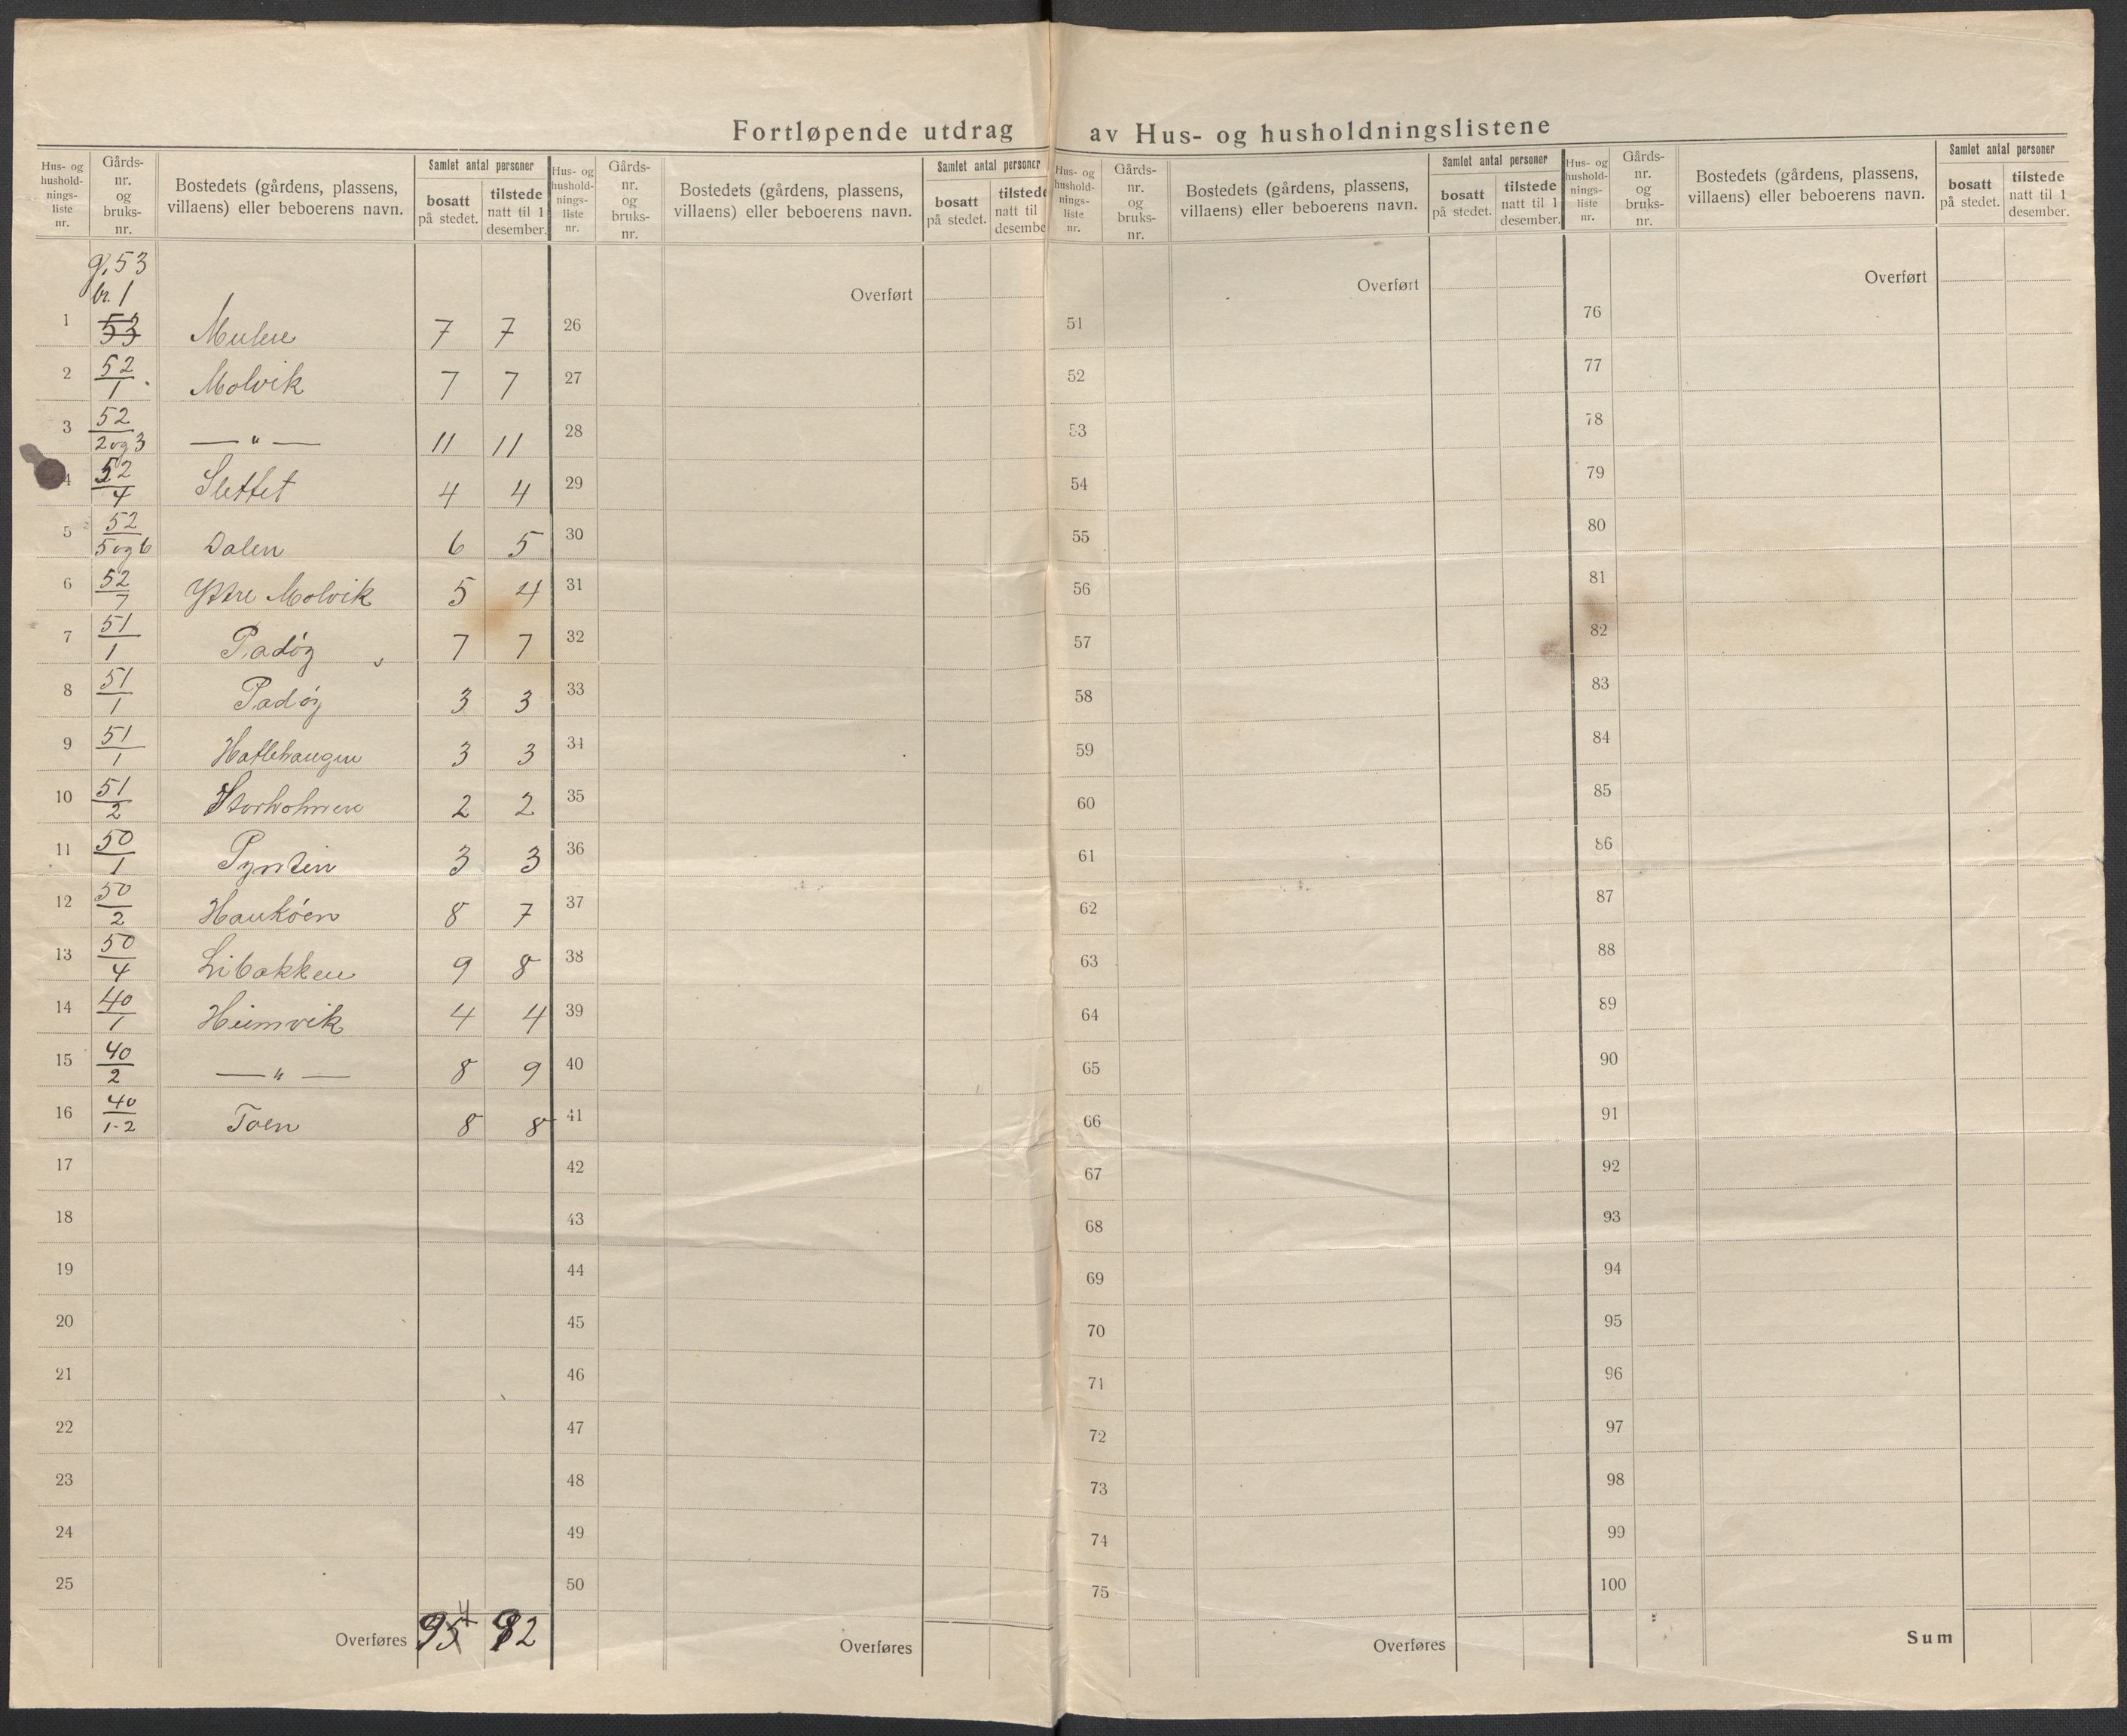 Fortløpende utdrag av Hus- og husholdningslistene
Hus- og hushold-nings-liste nr. Gårds-nr. og bruks-nr. Bostedets (gårdens, plassens, villaens) eller beboerens navn. Samlet antal personer bosatt på stedet. tilstede natt til 1 desember.
g. 53
br. 1
1 53 Mulen 7 7
2 52/1 Molvik 7 7
3 52/2 og 3 — " — 11 11
4 52/4 Slettet 4 4
5 52/5 og 6 Dalen 6 5
6 52/7 Yttre Molvik 5 4
7 51/1 Padøy 7 7
8 51/1 Padøy 3 3
9 51/1 Hatlehaugen 3 3
10 51/2 Storholmen 2 2
11 50/1 Pynten 3 3
12 50/2 Haukøen 8 7
13 50/4 Libakken 9 8
14 40/1 Heimvik 4 4
15 40/2 — " — 8 9
16 40/1-2 Toen 8 8
17
18
19
20
21
22
23
24
25
Overføres 95 4 92
Hus- og hushold-nings-liste nr. Gårds-nr. og bruks-nr. Bostedets (gårdens, plassens, villaens) eller beboerens navn. Samlet antal personer bosatt på stedet. tilstede natt til desembe
Overført
26
27
28
29
30
31
32
33
34
35
36
37
38
39
40
41
42
43
44
45
46
47
48
49
50
Overføres
Hus- og hushold-nings-liste nr. Gårds-nr. og bruks-nr. Bostedets (gårdens, plassens, villaens) eller beboerens navn. Samlet antal personer bosatt på stedet. tilstede natt til 1 desember.
Overført
51
52
53
54
55
56
57
58
59
60
61
62
63
64
65
66
67
68
69
70
71
72
73
74
75
Overføres
Hus- og hushold-nings-liste nr. Gårds-nr. og bruks-nr. Bostedets (gårdens, plassens, villaens) eller beboerens navn. Samlet antal personer bosatt på stedet. tilstede natt til 1 desember.
Overført
76
77
78
79
80
81
82
83
84
85
86
87
88
89
90
91
92
93
94
95
96
97
98
99
100
Sum